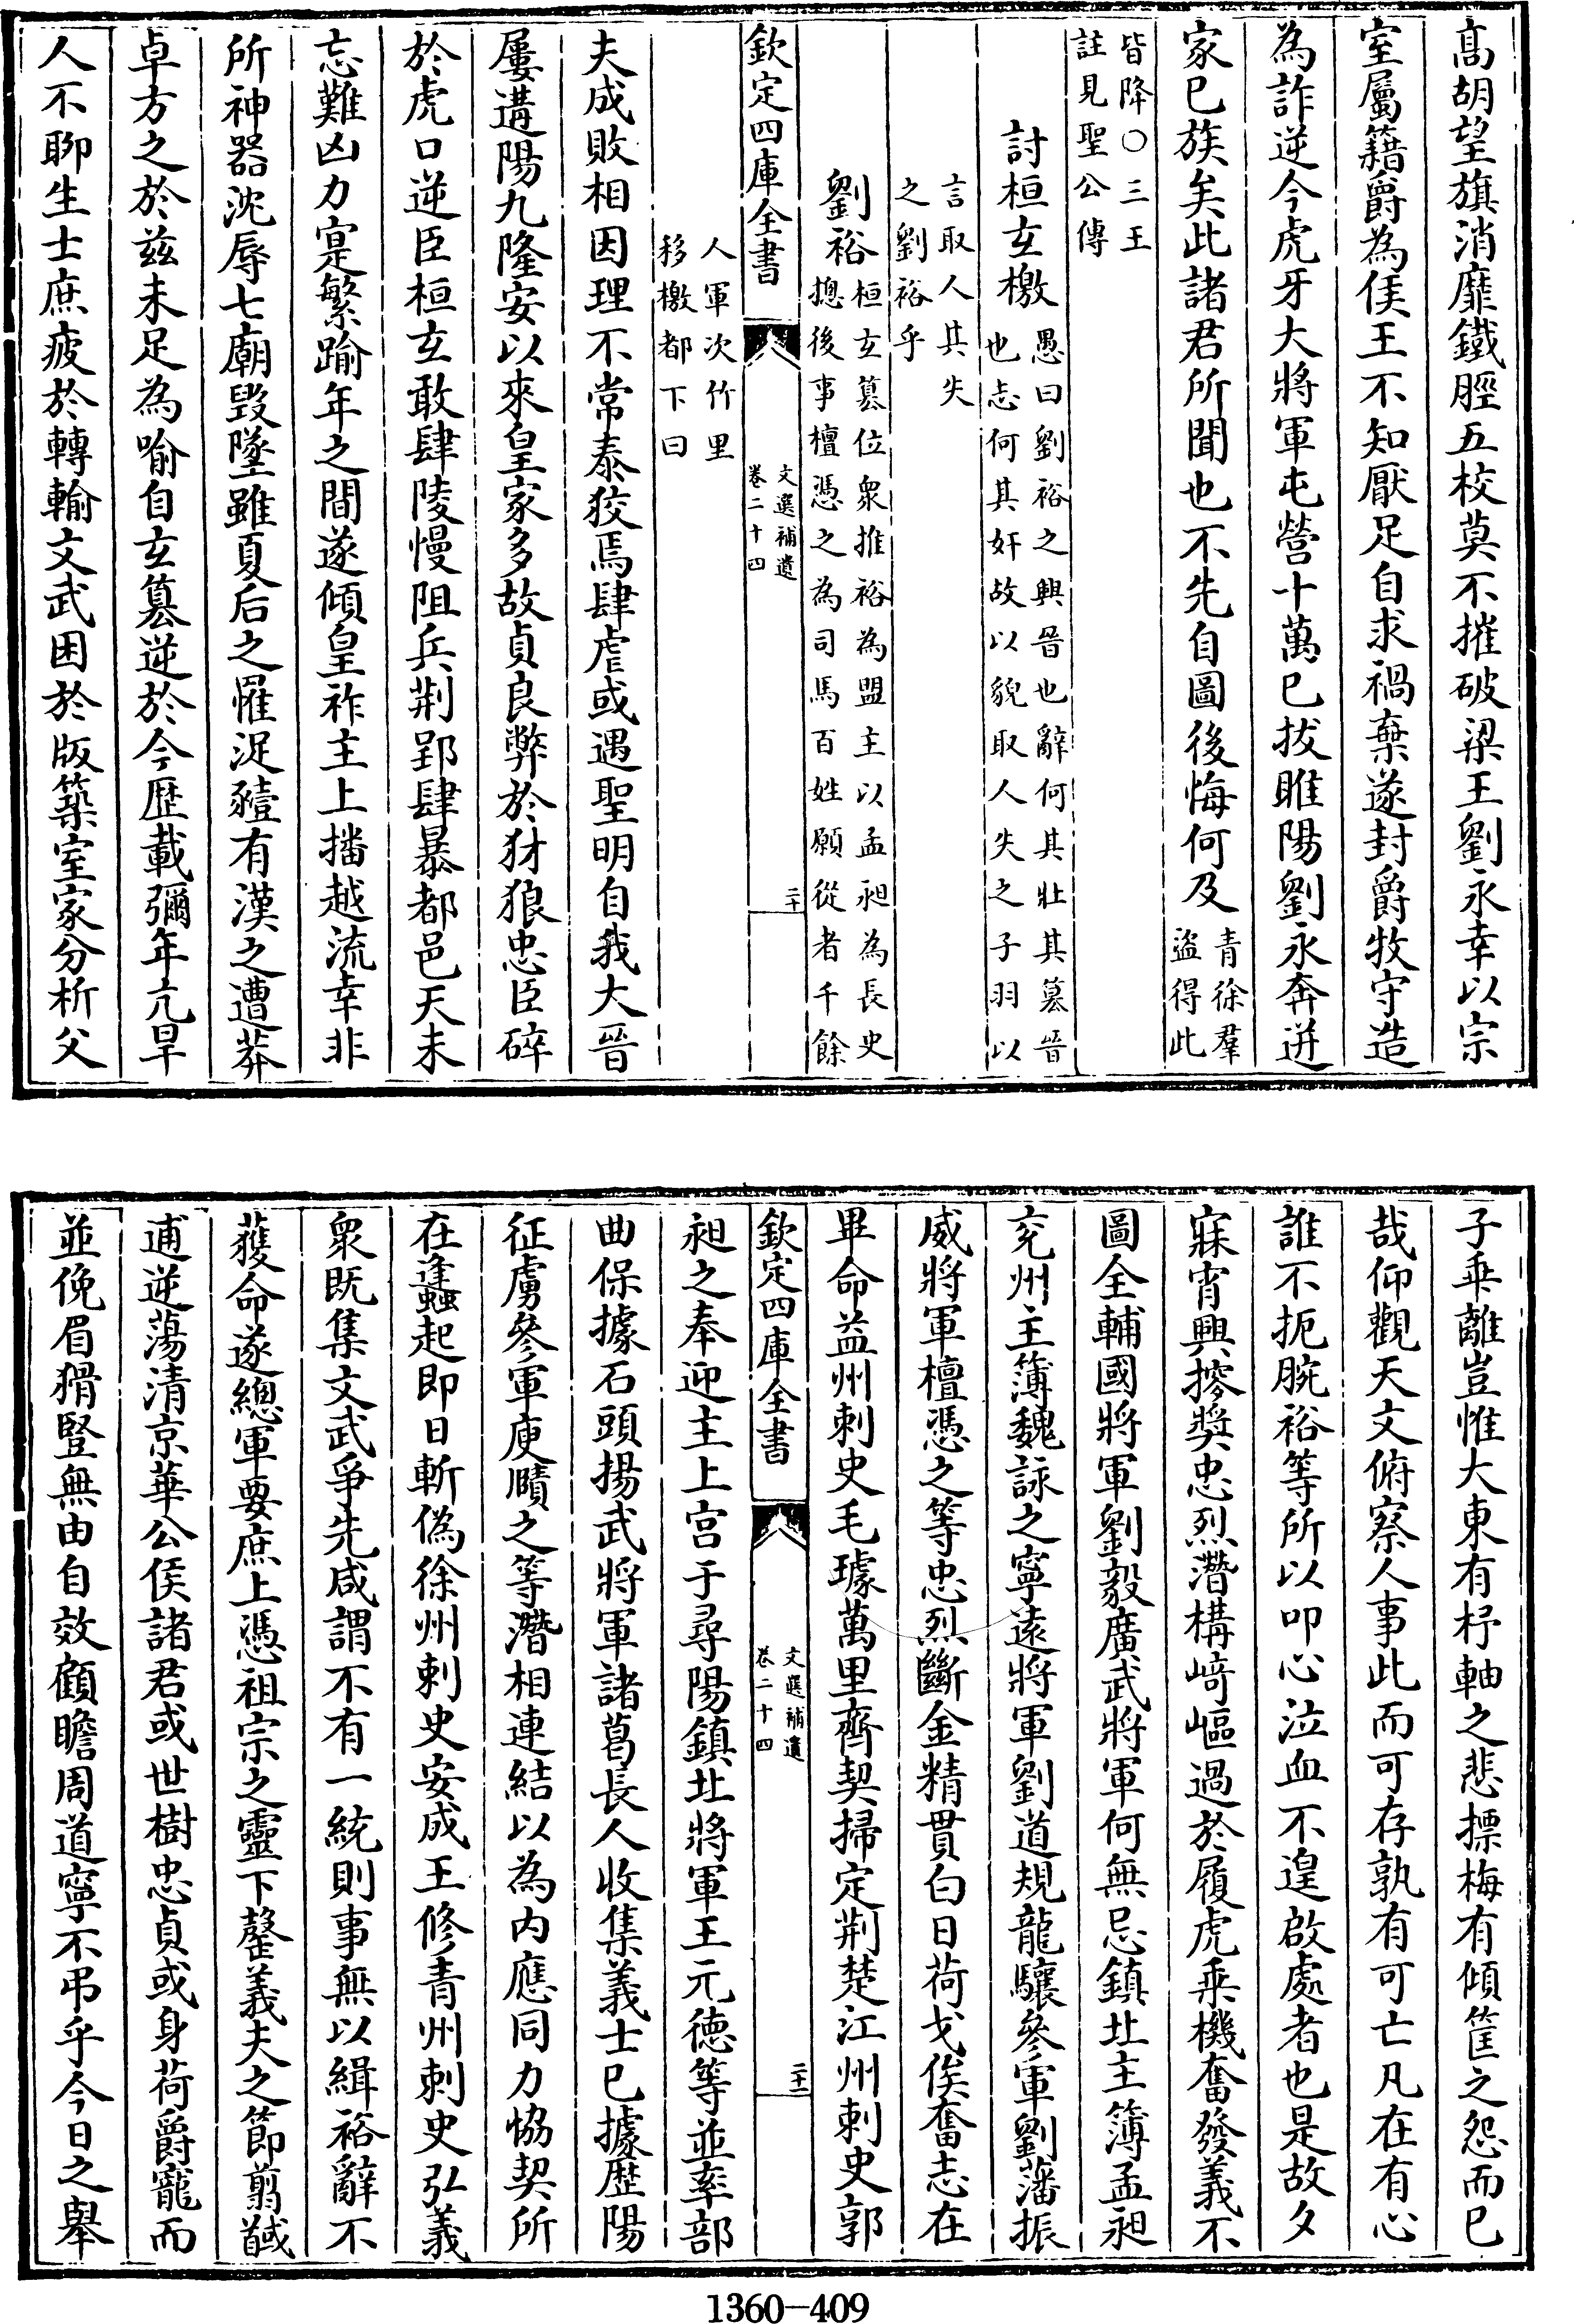 髙胡望旗消靡鐵脛五校莫不摧破梁王劉永幸以宗
室屬籍爵為侯王不知厭足自求禍棄遂封爵牧守造
為詐逆今虎牙大將軍屯營十萬已拔睢陽劉永奔迸
家已族矣此諸君所聞也不先自圖後悔何及青徐羣
盜得此
皆降○三王
註見聖公傳
討桓玄檄愚曰劉裕之興晉也辭何其壯其篡晉
也志何其奸故以貌取人失之子羽以
言取人其失
之劉裕乎
劉裕桓玄篡位衆推裕為盟主以孟昶為長史
摠後事檀憑之為司馬百姓願從者千餘
欽定四庫全書
文選補遺
卷二十四
二十
人軍次竹里
移檄都下曰
夫成敗相因理不常泰狡焉肆虐或遇聖明自我大晉
屢遘陽九隆安以來皇家多故貞良弊於犲狼忠臣碎
於虎口逆臣桓玄敢肆陵慢阻兵荆郢肆暴都邑天未
忘難凶力寔繁踰年之間遂傾皇祚主上播越流幸非
所神器沈辱七廟毁墜雖夏后之罹浞豷有漢之遭莽
卓方之於兹未足為喻自玄篡逆於今歴載彌年亢旱
人不聊生士庶疲於轉輸文武困於版築室家分析父
子乖離豈惟大東有杼軸之悲摽梅有傾筐之怨而已
哉仰觀天文俯察人事此而可存孰有可亡凡在有心
誰不扼腕裕等所以叩心泣血不遑啟處者也是故夕
寐宵興搜奬忠烈潛構崎嶇過於履虎乘機奮發義不
圖全輔國將軍劉毅廣武將軍何無忌鎮北主簿孟昶
兖州主簿魏詠之寧遠將軍劉道規龍驤參軍劉藩振
威將軍檀憑之等忠烈斷金精貫白日荷戈俟奮志在
畢命益州刺史毛璩萬里齊契掃定荆楚江州刺史郭
欽定四庫全書
文選補遺
卷二十四
二十一
昶之奉迎主上宫于尋陽鎮北將軍王元德等並率部
曲保據石頭揚武將軍諸葛長人收集義士已據歴陽
征虜參軍庾賾之等潛相連結以為内應同力協契所
在蠭起即日斬偽徐州刺史安成王修青州刺史弘義
衆既集文武爭先咸謂不有一統則事無以緝裕辭不
獲命遂總軍要庶上憑祖宗之靈下罄義夫之節翦馘
逋逆蕩清京華公侯諸君或世樹忠貞或身荷爵寵而
並俛眉猾豎無由自效顧瞻周道寧不弔乎今日之舉
1360-409